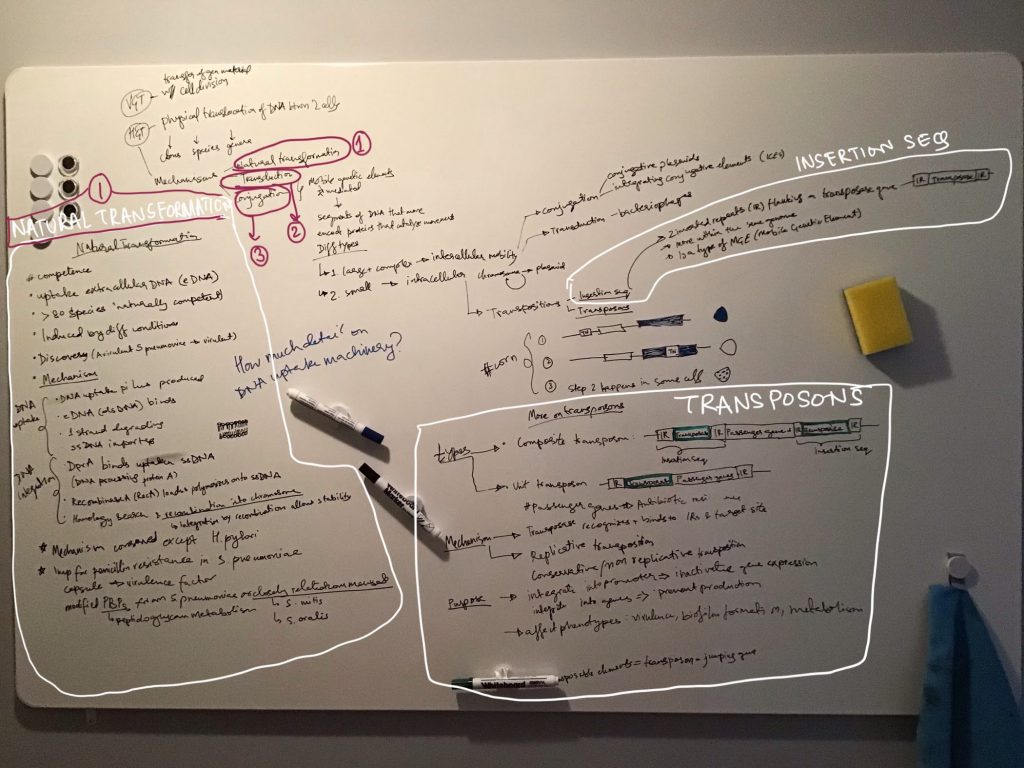 VGT
transfer of gen material
w/ cell division
HGT physical translocation of DNA btwn 2 cells
clones species genera
Mechanisms
Natural transformation 1
Transduction
Conjugation
2
3
mobile genetic elements
mediated
segments of DNA that
encode proteins that catalyze movement
Diff types
1. large + complex → intercellular mobility
2. small → intracellular
chromosome plasmid
Conjugation
conjugative plasmids
integrating conjugative elements (ICEs)
Transduction - bacteriophages
Transpositions
Insertion seq
Transposons
INSERTION SEQ
2 inverted repeats (IR) flanking a transposase gene
IR Transposase IR
move within the same genome
is a type of MGE (Mobile Genetic Element)
#corn
1
2
Tn
3 Step 2 happens in some cells
1
NATURAL TRANSFORMATION
Natural Transformation
# competence
• uptake extracellular DNA (eDNA)
• > 80 species "naturally competent"
• Induced by diff conditions
• Discovery (Avirulent S pneumoniae → virulent)
• Mechanism
DNA uptake
• DNA uptake pilus produced
• eDNA (dsDNA) binds
• 1 strand degrading
ssDNA imported
DNA integration
• DprA binds uptaken ssDNA
(DNA processing protein A)
• Recombinase (RecA) loads + polymerizes onto ssDNA
• Homology search & recombination into chromosome
↳ integration by recombination allows stability
* Mechanism conserved except H. pylori
* Imp for penicillin resistance in S. pneumoniae
capsule → virulence factor
modified PBPs from S pneumoniae or closely related
↳ peptidoglycan metabolism
↳ S. mitis
↳ S. oralis
How much detail on
DNA uptake machinery?
TRANSPOSONS
More on transposons
types
• Composite transposon:
IR Transposase IR Passenger genes IR Transposase IR
Insertion seq
Insertion seq
• Unit transposon
IR Transposase Passenger genes IR
# Passenger genes → Antibiotic
Mechanism
Transposase recognizes + binds to IRs & target site
Replicative transposition
Conservative/non replicative transposition
Purpose → integrate into promoters → inactivate gene expression
integrate into genes → prevent production
→ affect phenotypes: virulence, biofilm formation, metabolism
elements = transposon = jumping gene
Whiteboard
Marker
Whiteboard